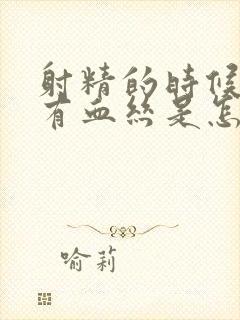 射精的时候
有血丝是怎
喻莉